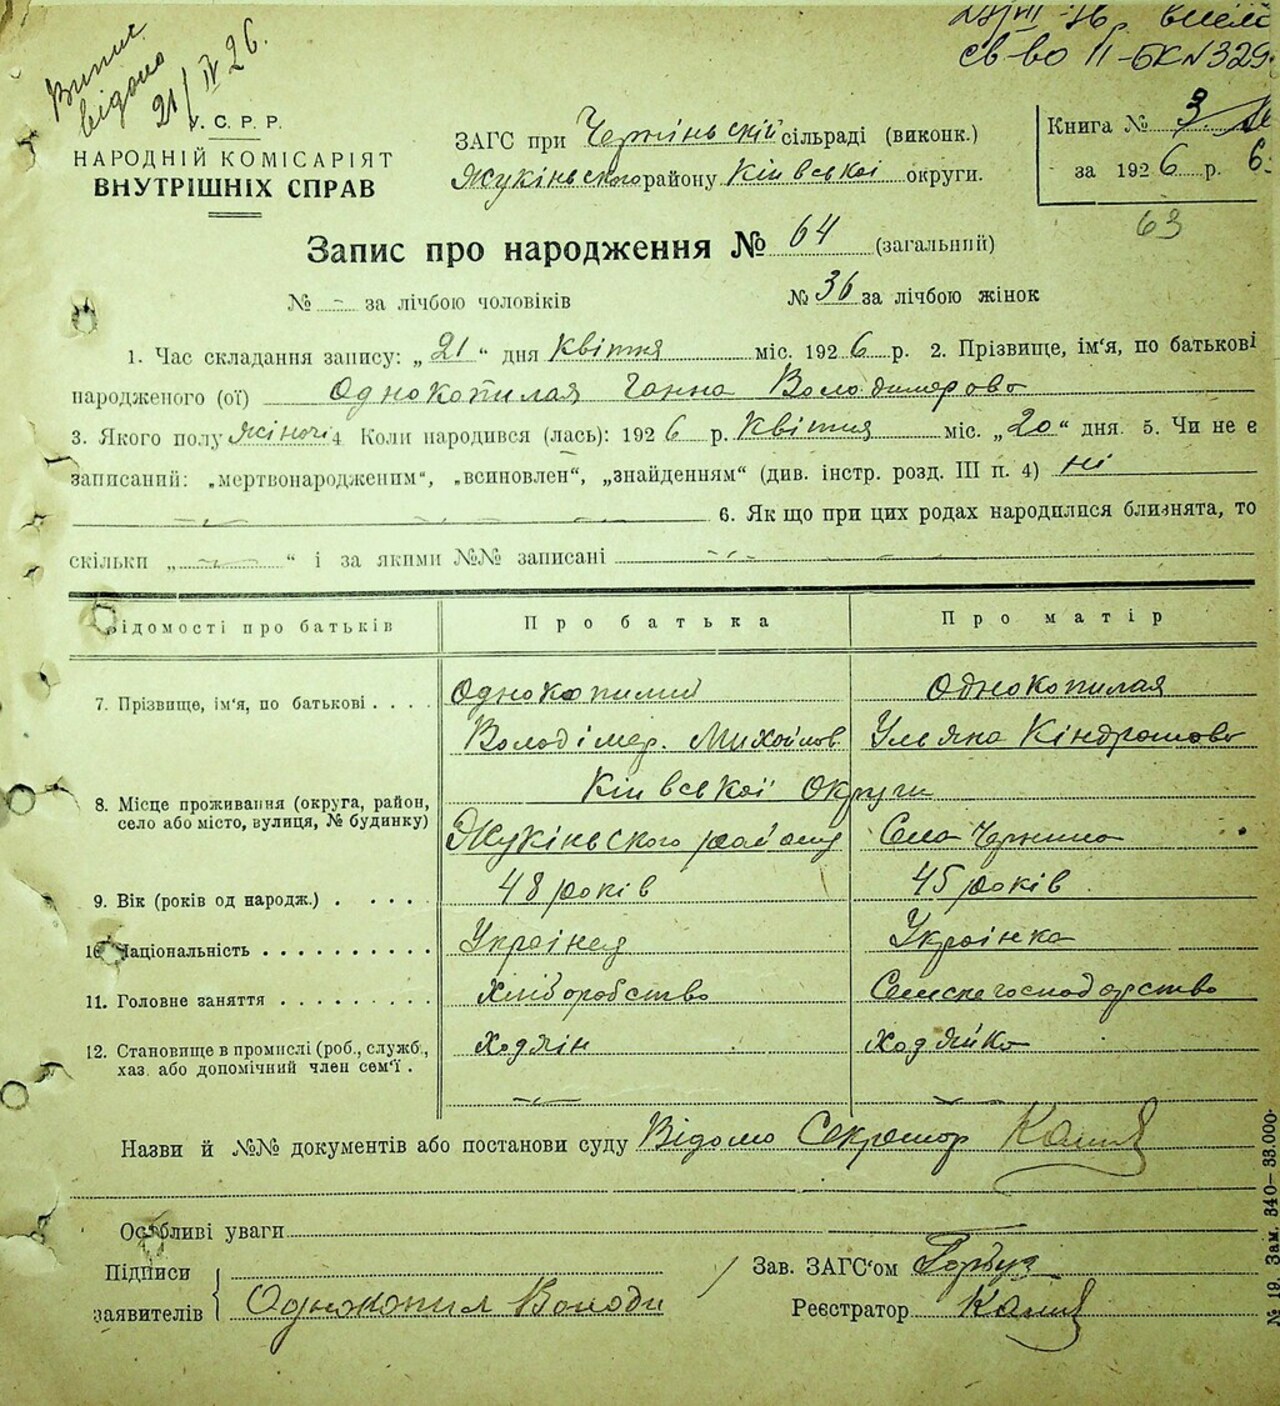 Випис
відано
21/IV 26.
св-во II-БК N 329
У. С. Р. Р.
НАРОДНІЙ КОМІСАРІЯТ
ВНУТРІШНІХ СПРАВ
ЗАГС при Черніньскій сільраді (виконк.)
Жукіньского району Київської округи.
Книга № 3
за 1926 р. 6.
63
Запис про народження № 64 (загальний)
№ - за лічбою чоловіків № 36 за лічбою жінок
1. Час складання запису: „21“ дня Квітня міс. 1926 р. 2. Прізвище, ім'я, по батькові
народженого (ої) Однокопилая Ганна Володимерово
3. Якого полу жіночі 4. Коли народився (лась): 1926 р. Квітня міс. „20“ дня. 5. Чи не є
записаний: „мертвонародженим“, „всиновлен“, „знайденням“ (див. інстр. розд. III п. 4) ні
6. Як що при цих родах народилися близнята, то
скільки „ “ і за якими №№ записані
Відомості про батьків Про батька Про матір
7. Прізвище, ім'я, по батькові . . . . Однокопилий Однокопилая
Володімер. Михойлов. Ульяна Кіндратово
8. Місце проживання (округа, район, село або місто, вулиця, № будинку) Київської Округи
Жукіньского району Села Чернино
9. Вік (років од народж.) . . . . . 48 років 45 років
10. Національність . . . . . . . . . . Українец Українка
11. Головне заняття . . . . . . . . . Хліборобство Сельске господарство
12. Становище в промислі (роб., служб., хаз. або допомічний член сем'ї . Ходяін Ходяйка
Назви й №№ документів або постанови суду Відомо Секретар
Особливі уваги
Підписи
заявителів Однокопил Володи
Зав. ЗАГС'ом Горбуз
Реєстратор
№ 19. Зам. 340—33.000.